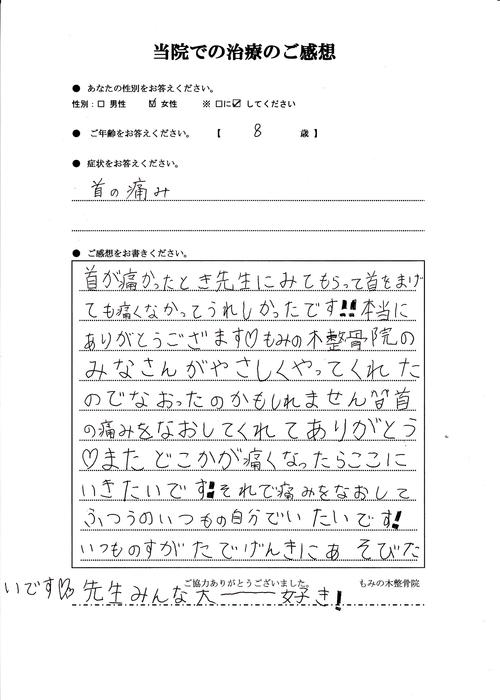 当院での治療のご感想
● あなたの性別をお答えください。
性別：□ 男性　☑ 女性　※ □に☑ してください
● ご年齢をお答えください。　【　8　歳】
● 症状をお答えください。
首の痛み
● ご感想をお書きください。
首が痛かったとき先生にみてもらって首をまげ
ても痛くなかってうれしかったです!!本当に
ありがとうござます♡もみの木整骨院の
みなさんがやさしくやってくれた
のでなおったのかもしれません^^首
の痛みをなおしてくれてありがとう
♡またどこかが痛くなったらここに
いきたいです!それで痛みをなおして
ふつうのいつもの自分でいたいです!
いつものすがたでげんきにあそびた
ご協力ありがとうございました。　もみの木整骨院
いです♡先生みんな大――好き!